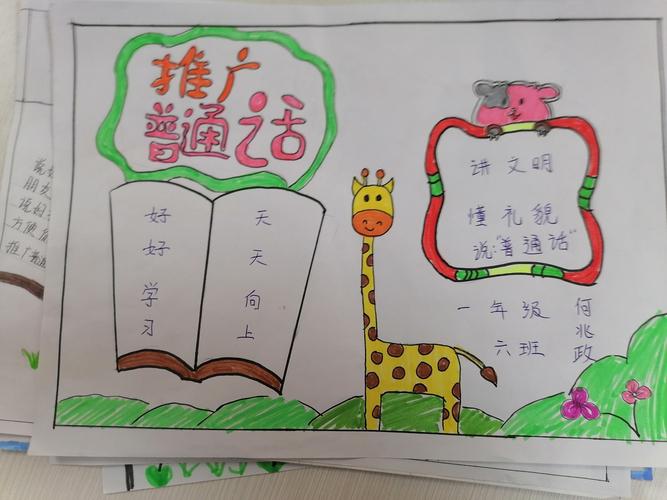 推广
普通话
好好学习
天天向上
讲文明
懂礼貌
说:“普通话”
一年级
六班
何兆政
说好
朋友
说好
方便
推广普通